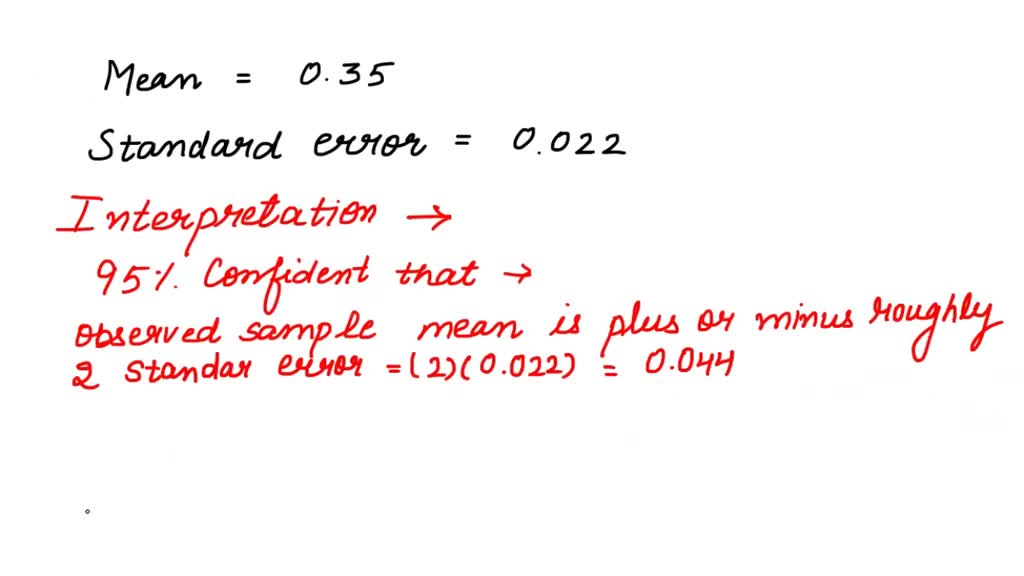 Mean = 0.35
Standard error = 0.022
Interpretation →
95%. Confident that →
observed sample mean is plus or minus roughly
2 standar error = (2)(0.022) = 0.044